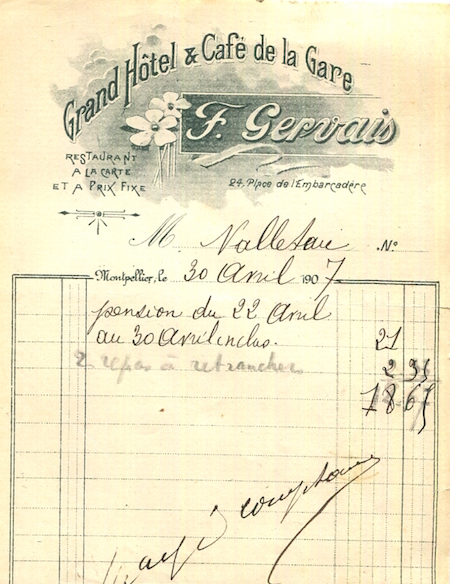 Grand Hôtel & Café de la Gare
F. Gervais
RESTAURANT
A LA CARTE
ET A PRIX FIXE
24, Place de l'Embarcadère
M. N°
Montpellier, le 30 Avril 1907
pension du 22 Avril
au 30 Avril inclus. 21
2 repas à retrancher 2 33
18 67
comptant